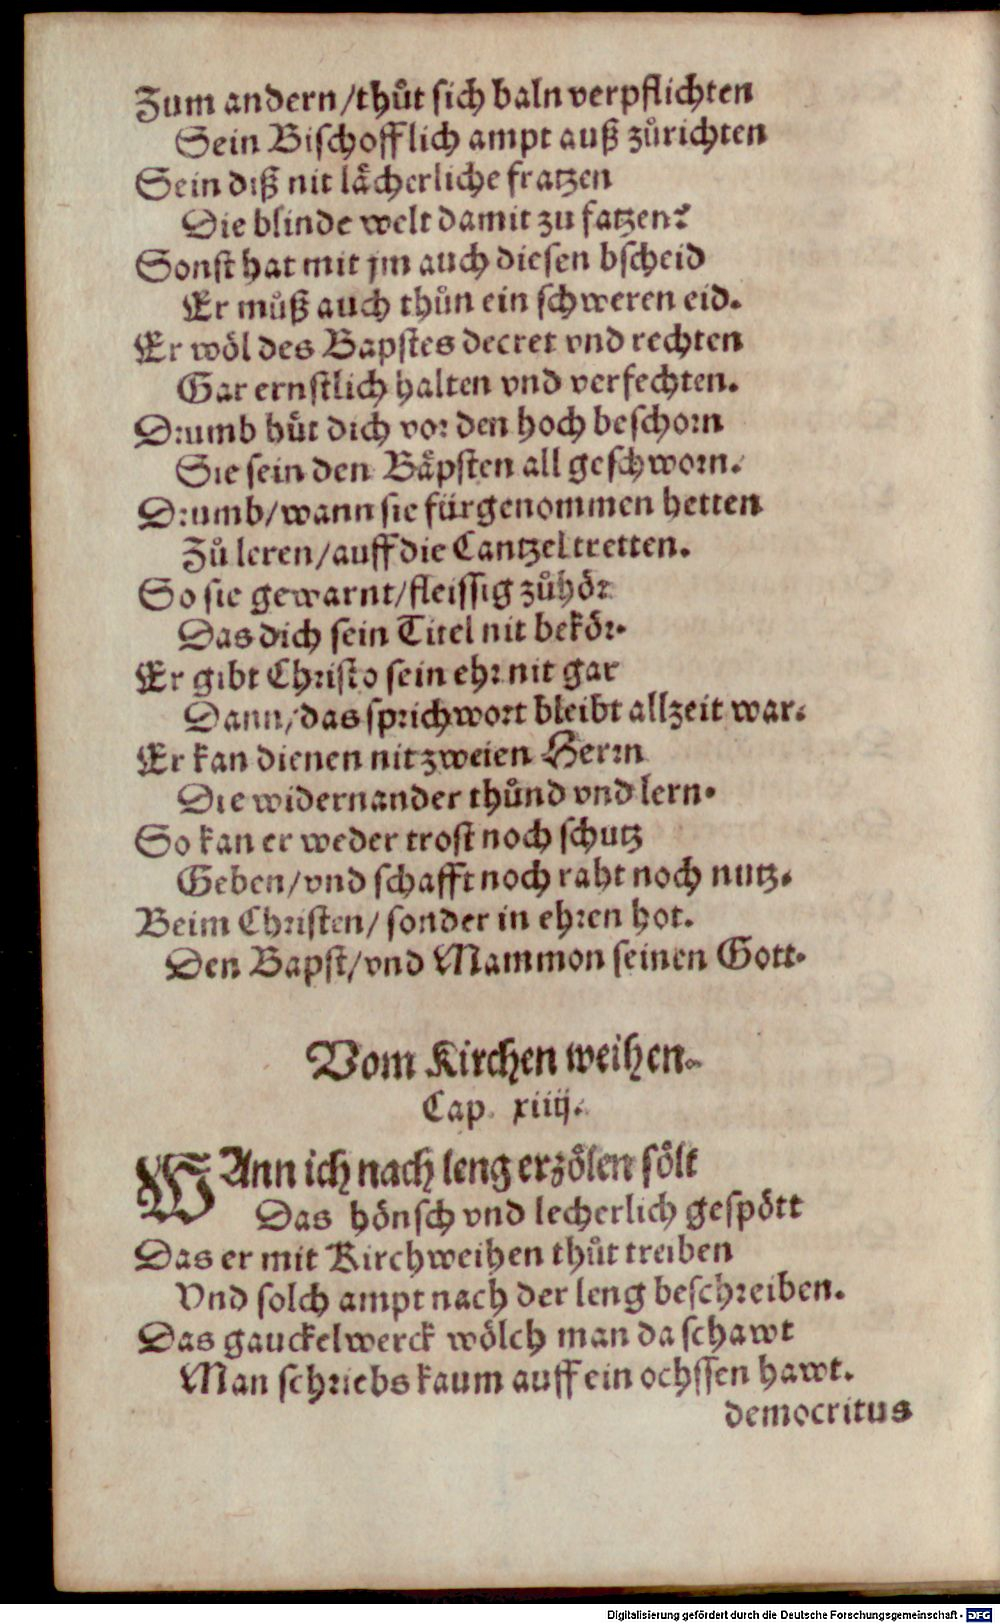 Zum andern/thůt sich baln verpflichten
Sein Bischofflich ampt auß zůrichten
Sein diß nit lächerliche fratzen
Die blinde welt damit zu fatzen?
Sonst hat mit jm auch diesen bscheid
Er můß auch thůn ein schweren eid.
Er wöl des Bapstes decret vnd rechten
Gar ernstlich halten vnd verfechten.
Drumb hůt dich vor den hoch beschorn
Sie sein den Bäpsten all geschworn.
Drumb/wann sie fürgenommen hetten
Zů leren/auff die Cantzel tretten.
So sie gewarnt/fleissig zůhör
Das dich sein Titel nit bekör.
Er gibt Christo sein ehr nit gar
Dann/das sprichwort bleibt allzeit war.
Er kan dienen nit zweien Herrn
Die widernander thůnd vnd lern.
So kan er weder trost noch schutz
Geben/vnd schafft noch raht noch nutz.
Beim Christen/sonder in ehren hot.
Den Bapst/vnd Mammon seinen Gott.
Vom Kirchen weihen.
Cap. xiiij.
WAnn ich nach leng erzölen sölt
Das hönsch vnd lecherlich gespött
Das er mit Kirchweihen thůt treiben
Vnd solch ampt nach der leng beschreiben.
Das gauckelwerck wölch man da schawt
Man schriebs kaum auff ein ochssen hawt.
democritus
Digitalisierung gefördert durch die Deutsche Forschungsgemeinschaft - DFG